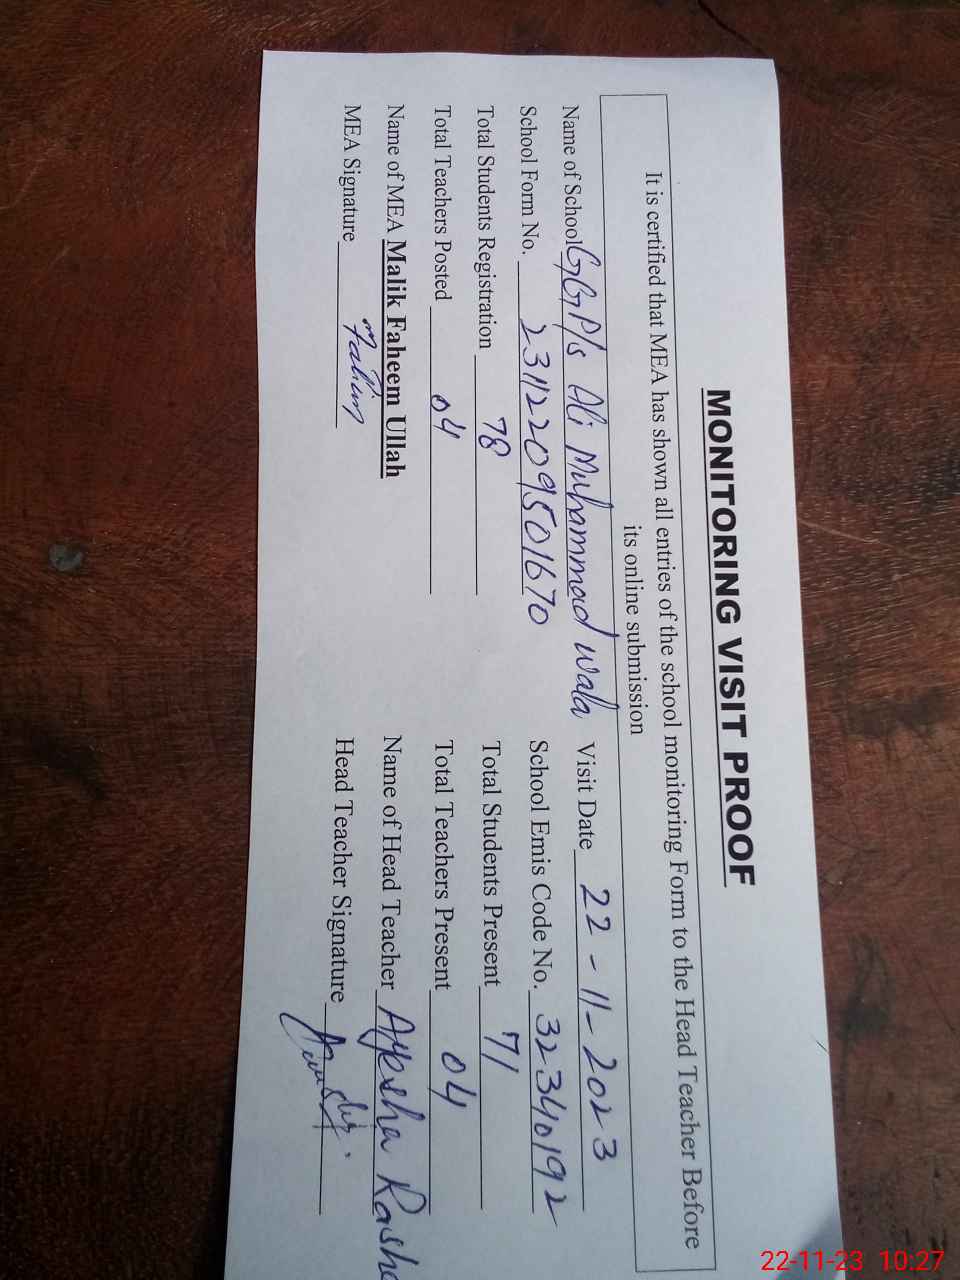 MONITORING VISIT PROOF
It is certified that MEA has shown all entries of the school monitoring Form to the Head Teacher Before
its online submission
Name of School GGP/s Ali Muhammad wala Visit Date 22-11-2023
School Form No. 23112209501670 School Emis Code No. 32340192
Total Students Registration 78 Total Students Present 71
Total Teachers Posted 04 Total Teachers Present 04
Name of MEA Malik Faheem Ullah Name of Head Teacher Ayesha
MEA Signature Fahim Head Teacher Signature
22-11-23 10:27